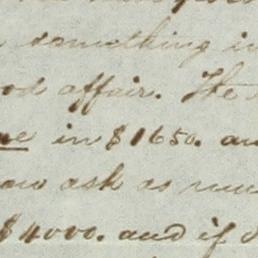 something in
affair. The
in $1650. an
ask as mu
$4000. and if